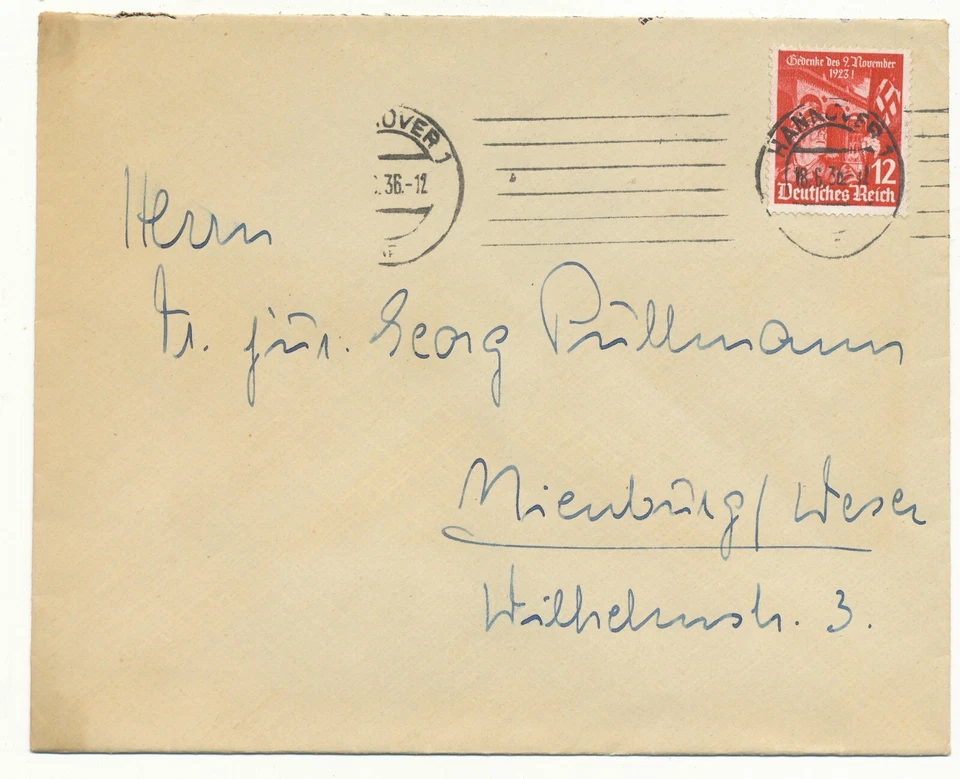 Gedenke des 9. November
1923!
12
Deutsches Reich
HANNOVER 1
18.6.36.-12
OVER 1
.36.-12
Herrn
Dr. jur. Georg Püllmann
Nienburg/Weser
Wilhelmstr. 3.